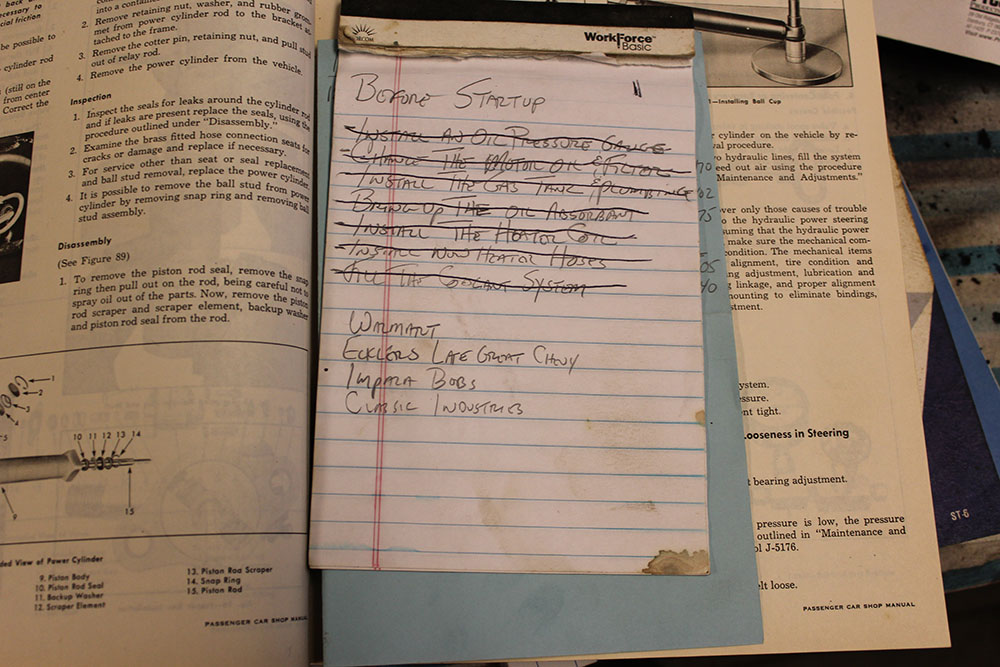 back
ecessary to
cial friction
be possible to
cylinder rod
(still on the
from center
Correct the
into a
2. Remove retaining nut, washer, and rubber grom-
met from power cylinder rod to the bracket at-
tached to the frame.
3. Remove the cotter pin, retaining nut, and pull stud
out of relay rod.
4. Remove the power cylinder from the vehicle.
Inspection
1. Inspect the seals for leaks around the cylinder rod
and if leaks are present replace the seals, using the
procedure outlined under "Disassembly."
2. Examine the brass fitted hose connection seats for
cracks or damage and replace if necessary.
3. For service other than seat or seal replacement
and ball stud removal, replace the power cylinder.
4. It is possible to remove the ball stud from power
cylinder by removing snap ring and removing ball
stud assembly.
Disassembly
(See Figure 89)
1. To remove the piston rod seal, remove the snap
ring then pull out on the rod, being careful not to
spray oil out of the parts. Now, remove the piston
rod scraper and scraper element, backup washer
and piston rod seal from the rod.
1
2
3
4
5
10 11 12 13 14
9
15
ded View of Power Cylinder
9. Piston Body
10. Piston Rod Seal
11. Backup Washer
12. Scraper Element
13. Piston Rod Scraper
14. Snap Ring
15. Piston Rod
PASSENGER CAR SHOP MANUAL
SECOM
WorkForce™
Basic
Before Startup
Install an Oil Pressure Gauge
Change the Motor Oil & Filter
Install the Gas Tank & Plumbing
Bring up the Oil Absorbant
Install the Heator Coil
Install New Heator Hoses
Fill the Coolant System
Walmart
Ecklers Late Great Chevy
Impala Bobs
Classic Industries
70
02
75
05
40
1—Installing Ball Cup
r cylinder on the vehicle by re-
val procedure.
o hydraulic lines, fill the system
eed out air using the procedure
Maintenance and Adjustments."
ver only those causes of trouble
o the hydraulic power steering
suming that the hydraulic power
make sure the mechanical com-
condition. The mechanical items
alignment, tire condition and
ng adjustment, lubrication and
g linkage, and proper alignment
mounting to eliminate bindings,
stment.
ystem.
ssure.
nt tight.
Looseness in Steering
t bearing adjustment.
pressure is low, the pressure
outlined in "Maintenance and
ol J-5176.
elt loose.
PASSENGER CAR SHOP MANUAL
ST-6